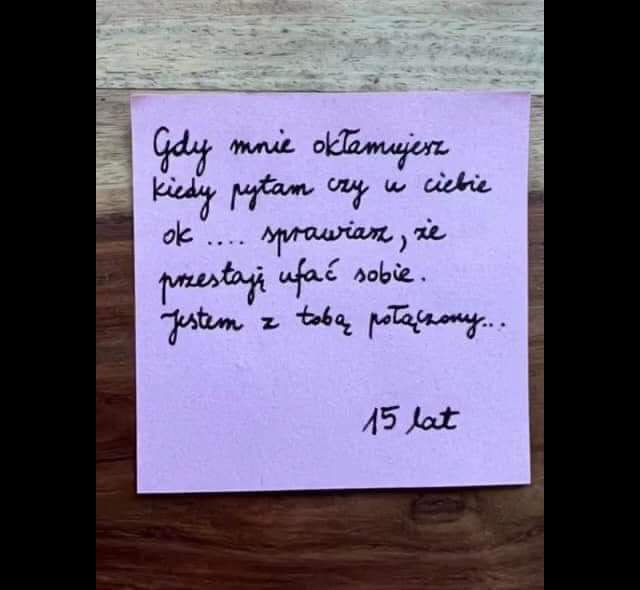 Gdy mnie okłamujesz
kiedy pytam czy u ciebie
ok .... sprawiasz, że
przestaję ufać sobie.
Jestem z tobą połączony...
15 lat